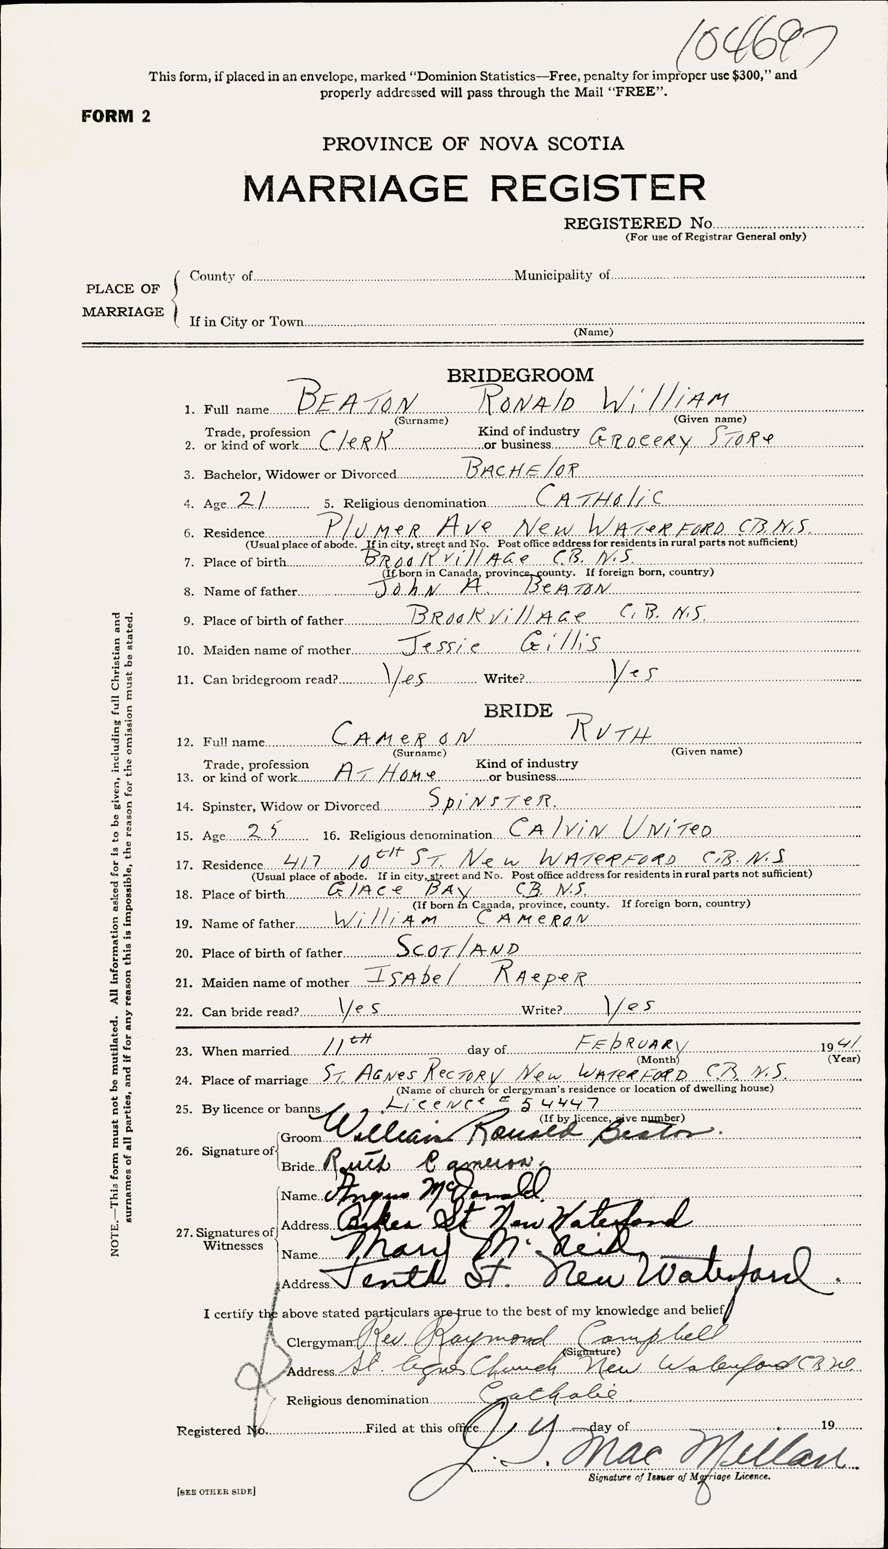 104697
This form, if placed in an envelope, marked "Dominion Statistics—Free, penalty for improper use $300," and
properly addressed will pass through the Mail "FREE".
FORM 2
PROVINCE OF NOVA SCOTIA
MARRIAGE REGISTER
REGISTERED No.
(For use of Registrar General only)
PLACE OF MARRIAGE
County of Municipality of
If in City or Town
(Name)
BRIDEGROOM
1. Full name BEATON RONALD WILLIAM
(Surname) (Given name)
2. Trade, profession or kind of work Clerk Kind of industry or business GROCERY STORe
3. Bachelor, Widower or Divorced BACHElOR
4. Age 21 5. Religious denomination CATHOLIC
6. Residence PLUMER AVe NeW WATERFORD C.B. N.S.
(Usual place of abode. If in city, street and No. Post office address for residents in rural parts not sufficient)
7. Place of birth BROOKVIllAGe C.B. N.S.
(If born in Canada, province, county. If foreign born, country)
8. Name of father JOHN A. BeATON
9. Place of birth of father BROOKVIllAGe C.B. N.S.
10. Maiden name of mother Jessie GilliS
11. Can bridegroom read? Yes Write? Yes
BRIDE
12. Full name CAMeRON RUTH
(Surname) (Given name)
13. Trade, profession or kind of work AT HOMe Kind of industry or business
14. Spinster, Widow or Divorced SPINSTER.
15. Age 25 16. Religious denomination CALVIN UNITED
17. Residence 417 10TH ST. New WATERFORD C.B. N.S
(Usual place of abode. If in city, street and No. Post office address for residents in rural parts not sufficient)
18. Place of birth GlACe BAY C.B. N.S.
(If born in Canada, province, county. If foreign born, country)
19. Name of father WilliAM CAMeRON
20. Place of birth of father SCOTlAND
21. Maiden name of mother ISABel RAePeR
22. Can bride read? Yes Write? Yes
23. When married 11TH day of FEBRUARY 1941
(Month) (Year)
24. Place of marriage ST. AGNES RECTORY New WATERFORD C.B. N.S.
(Name of church or clergyman's residence or location of dwelling house)
25. By licence or banns LICeNCe # 54447
(If by licence, give number)
26. Signature of
Groom William Ronald Beaton.
Bride Ruth Cameron.
27. Signatures of Witnesses
Name Angus McDonald
Address St New Waterford
Name Mary M. Reid
Address Tenth St. New Waterford.
I certify the above stated particulars are true to the best of my knowledge and belief
Clergyman Rev. Raymond Campbell
(Signature)
Address St. Agnes Church New Waterford CB NS
Religious denomination Catholic.
Registered No. Filed at this office day of 19
J. Y. MacMillan
Signature of Issuer of Marriage Licence.
[SEE OTHER SIDE]
NOTE.—This form must not be mutilated. All information asked for is to be given, including full Christian and
surnames of all parties, and if for any reason this is impossible, the reason for the omission must be stated.